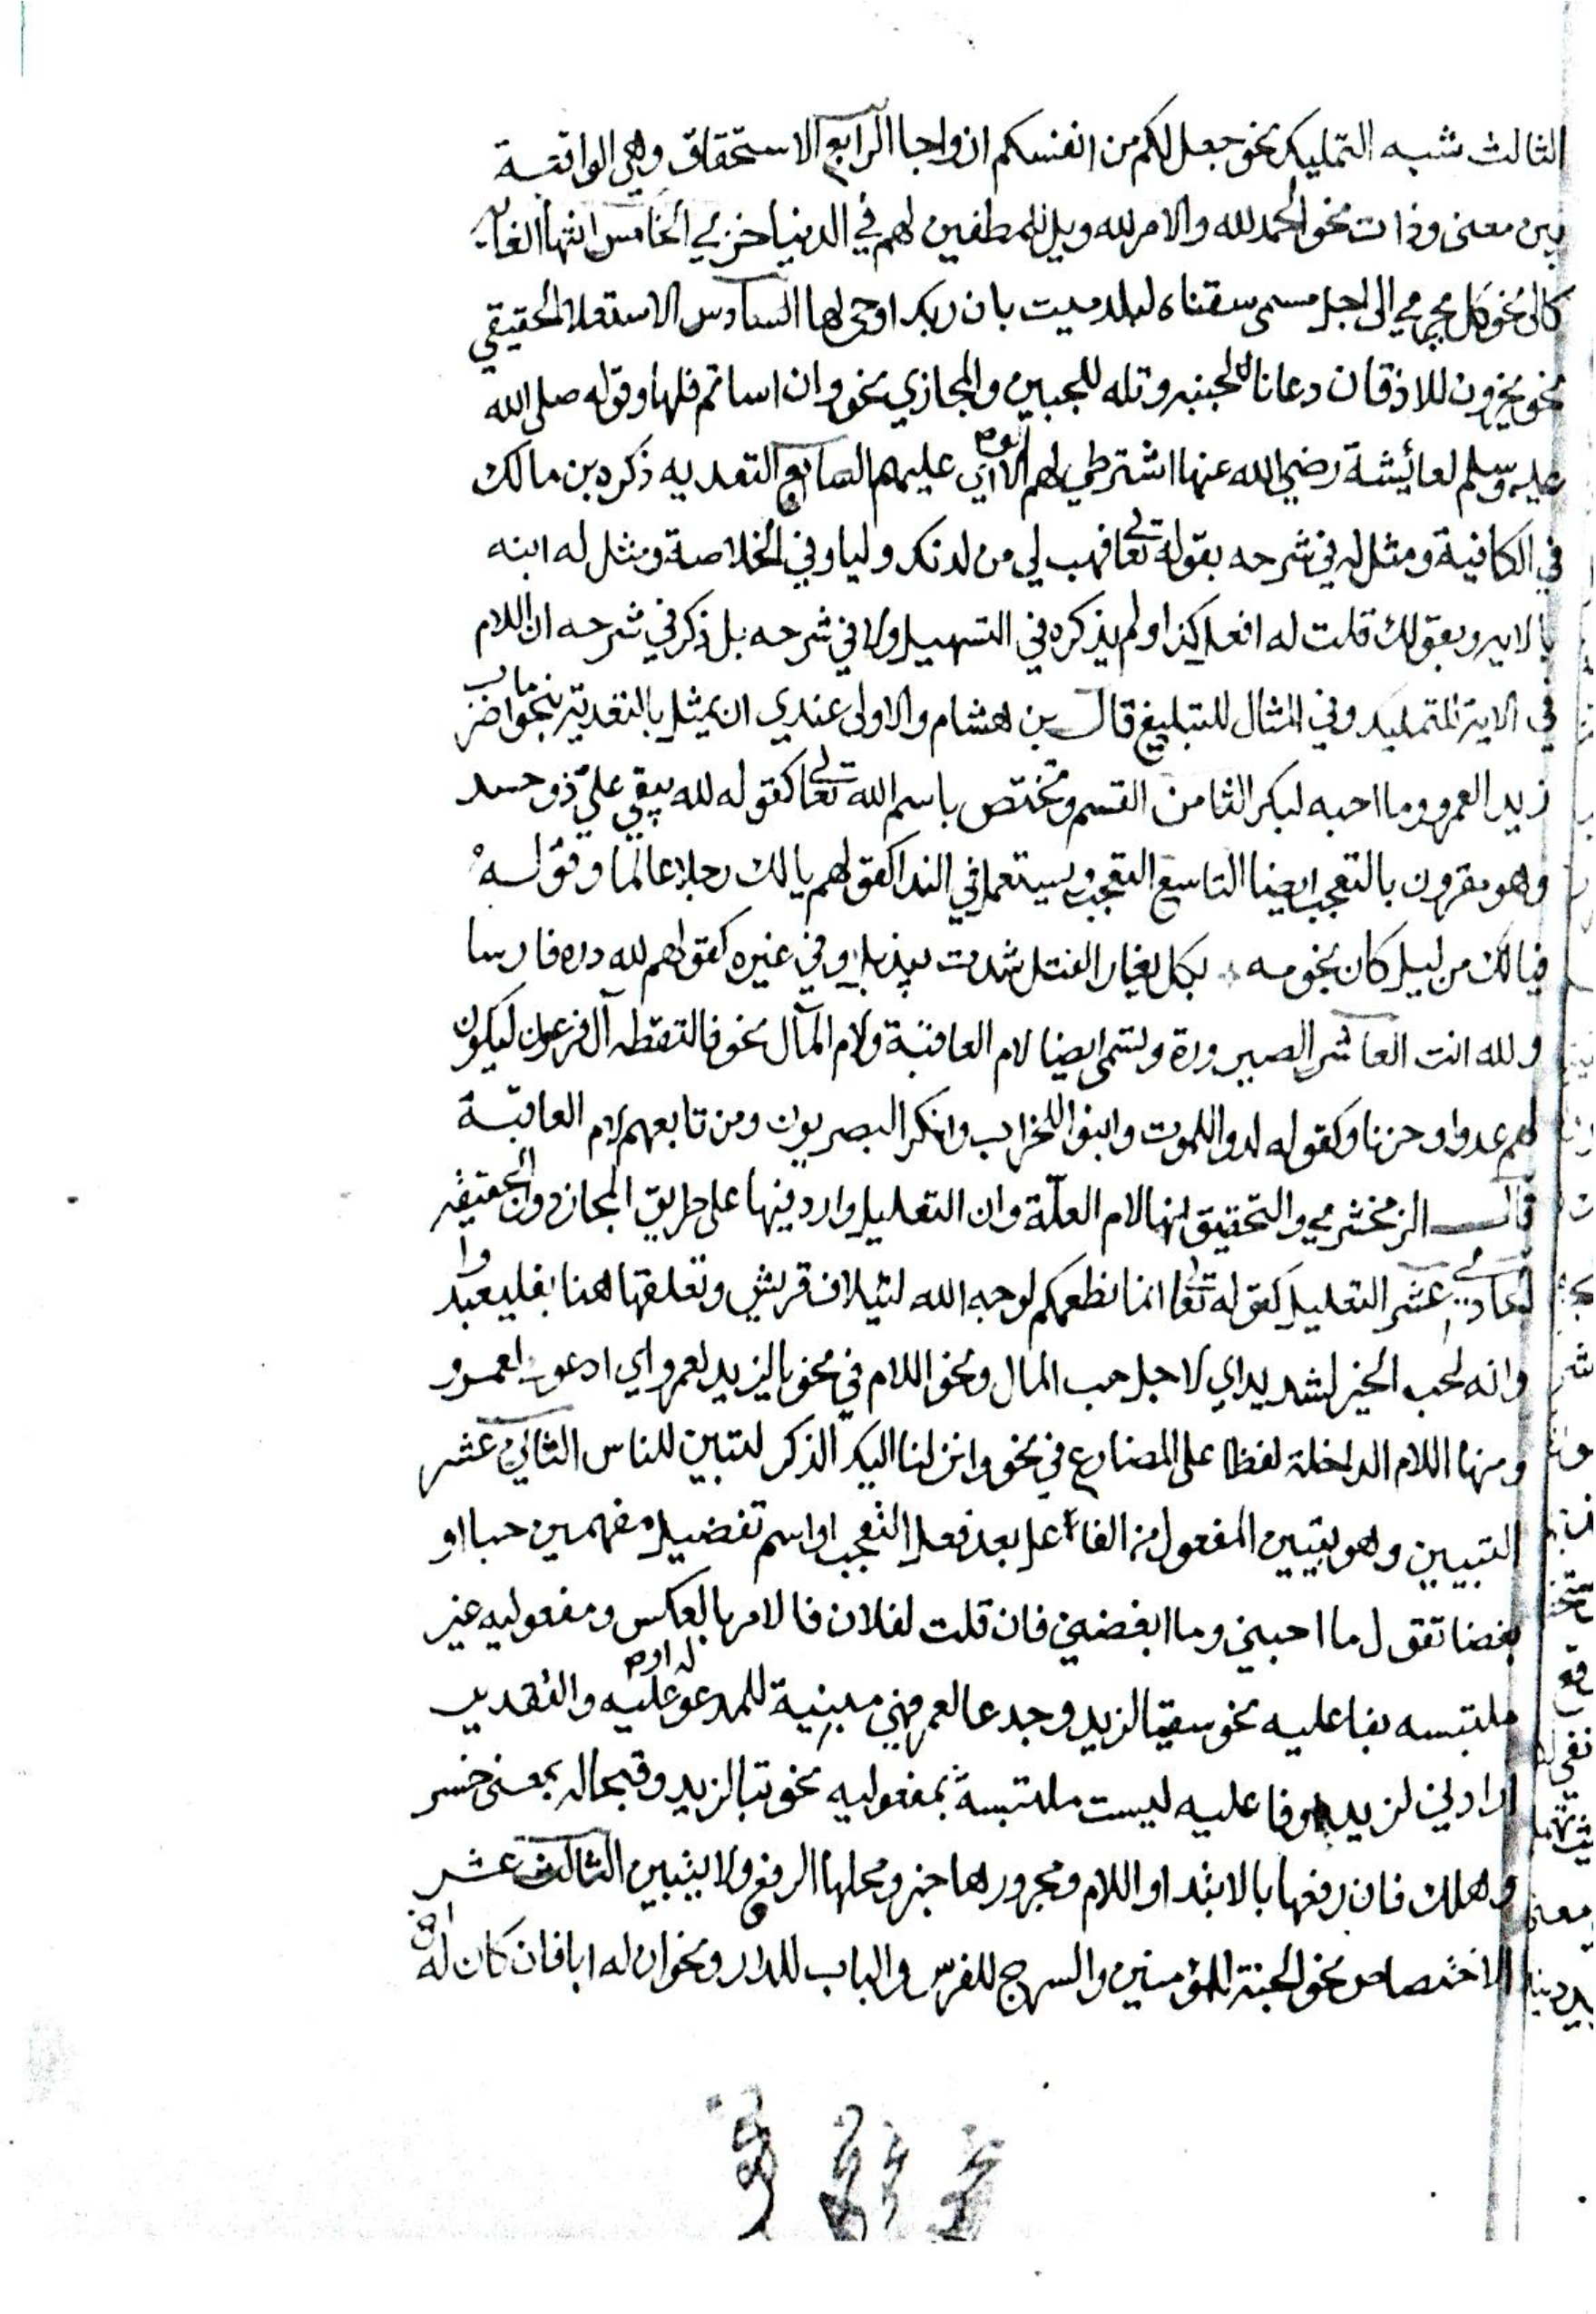 الثالث شبه التمليك نحو جعل لكم من انفسكم ازواجا الرابع الاستحقاق وهي الواقعة
بين معنى وذات نحو الحمد لله والامر لله وويل للمطففين لهم في الدنيا خزي الخامس انتها الغاية
كالى نحو كل يجري الى اجل مسمى سقناه لبلد ميت بان ربك اوحى لها السادس الاستعلا الحقيقي
نحو يخرون للاذقان دعانا لجنبه وتله للجبين والمجازي نحو وان اساتم فلها وقوله صلى الله
عليه وسلم لعائيشة رضي الله عنها اشترطي لهم الولا اي عليهم السابع التعديه ذكره بن مالك
في الكافية ومثل له في شرحه بقوله تعالى فهب لي من لدنك وليا وفي الخلاصة ومثل له ابنه
بالايه وبقولك قلت له افعل كذا ولم يذكره في التسهيل ولا في شرحه بل ذكر في شرحه ان اللام
في الاية للتمليك وفي المثال للتبليغ قال بن هشام والاولى عندي ان يمثل بالتعدية بنحو ما اضرب
زيد العمرو وما احبه لبكر الثامن القسم وتختص باسم الله تعالى كقوله لله يبقي علي ذو حسد
وهو مقرون بالتعجب ايضا التاسع التعجب ويستعمل في الندا كقولهم يا لك رجلا عالما وقوله
فيا لك من ليل كان نجومه بكل مغار الفتل شدت بيذبل وفي غيره كقولهم لله دره فارسا
ولله انت العاشر الصيرورة وتسمى ايضا لام العاقبة ولام المآل نحو فالتقطه آل فرعون ليكون
لهم عدوا وحزنا وكقوله لدوا للموت وابنوا للخراب وانكر البصريون ومن تابعهم لام العاقبة
قال الزمخشري والتحقيق انها لام العلة وان التعليل وارد فيها على طريق المجاز دون الحقيقه
الحادي عشر التعليل كقوله تعالى انما نطعمكم لوجه الله لئيلاف قريش وتعلقها هنا بفليعبدوا
وانه لحب الخير لشديد اي لاجل حب المال ونحو اللام في نحو يا لزيد لعمرو اي ادعوك لعمرو
ومنها اللام الداخلة لفظا على المضارع في نحو وانزلنا اليك الذكر لتبين للناس الثاني عشر
التبيين وهو تبيين المفعول من الفاعل بعد فعل التعجب او اسم تفضيل مفهمين حبا او
بغضا تقول ما احبني وما ابغضني فان قلت لفلان فالامر بالعكس ومفعوليه غير
ملتبسه بفاعليه نحو سقيا لزيد وجدعا لعمرو فهي مبينية للمدعو له او عليه والتقدير
ارادني لزيد وفاعليه ليست ملتبسة بمفعوليه نحو تبا لزيد وقبحا له بمعنى خسر
وهلك فان رفعها بالابتدا واللام ومجرورها خبر ومحلها الرفع ولا يتبين الثالث عشر
الاختصاص نحو الجنة للمؤمنين والسرج للفرس والباب للدار ونحو ان له ابا فان كان له اخ